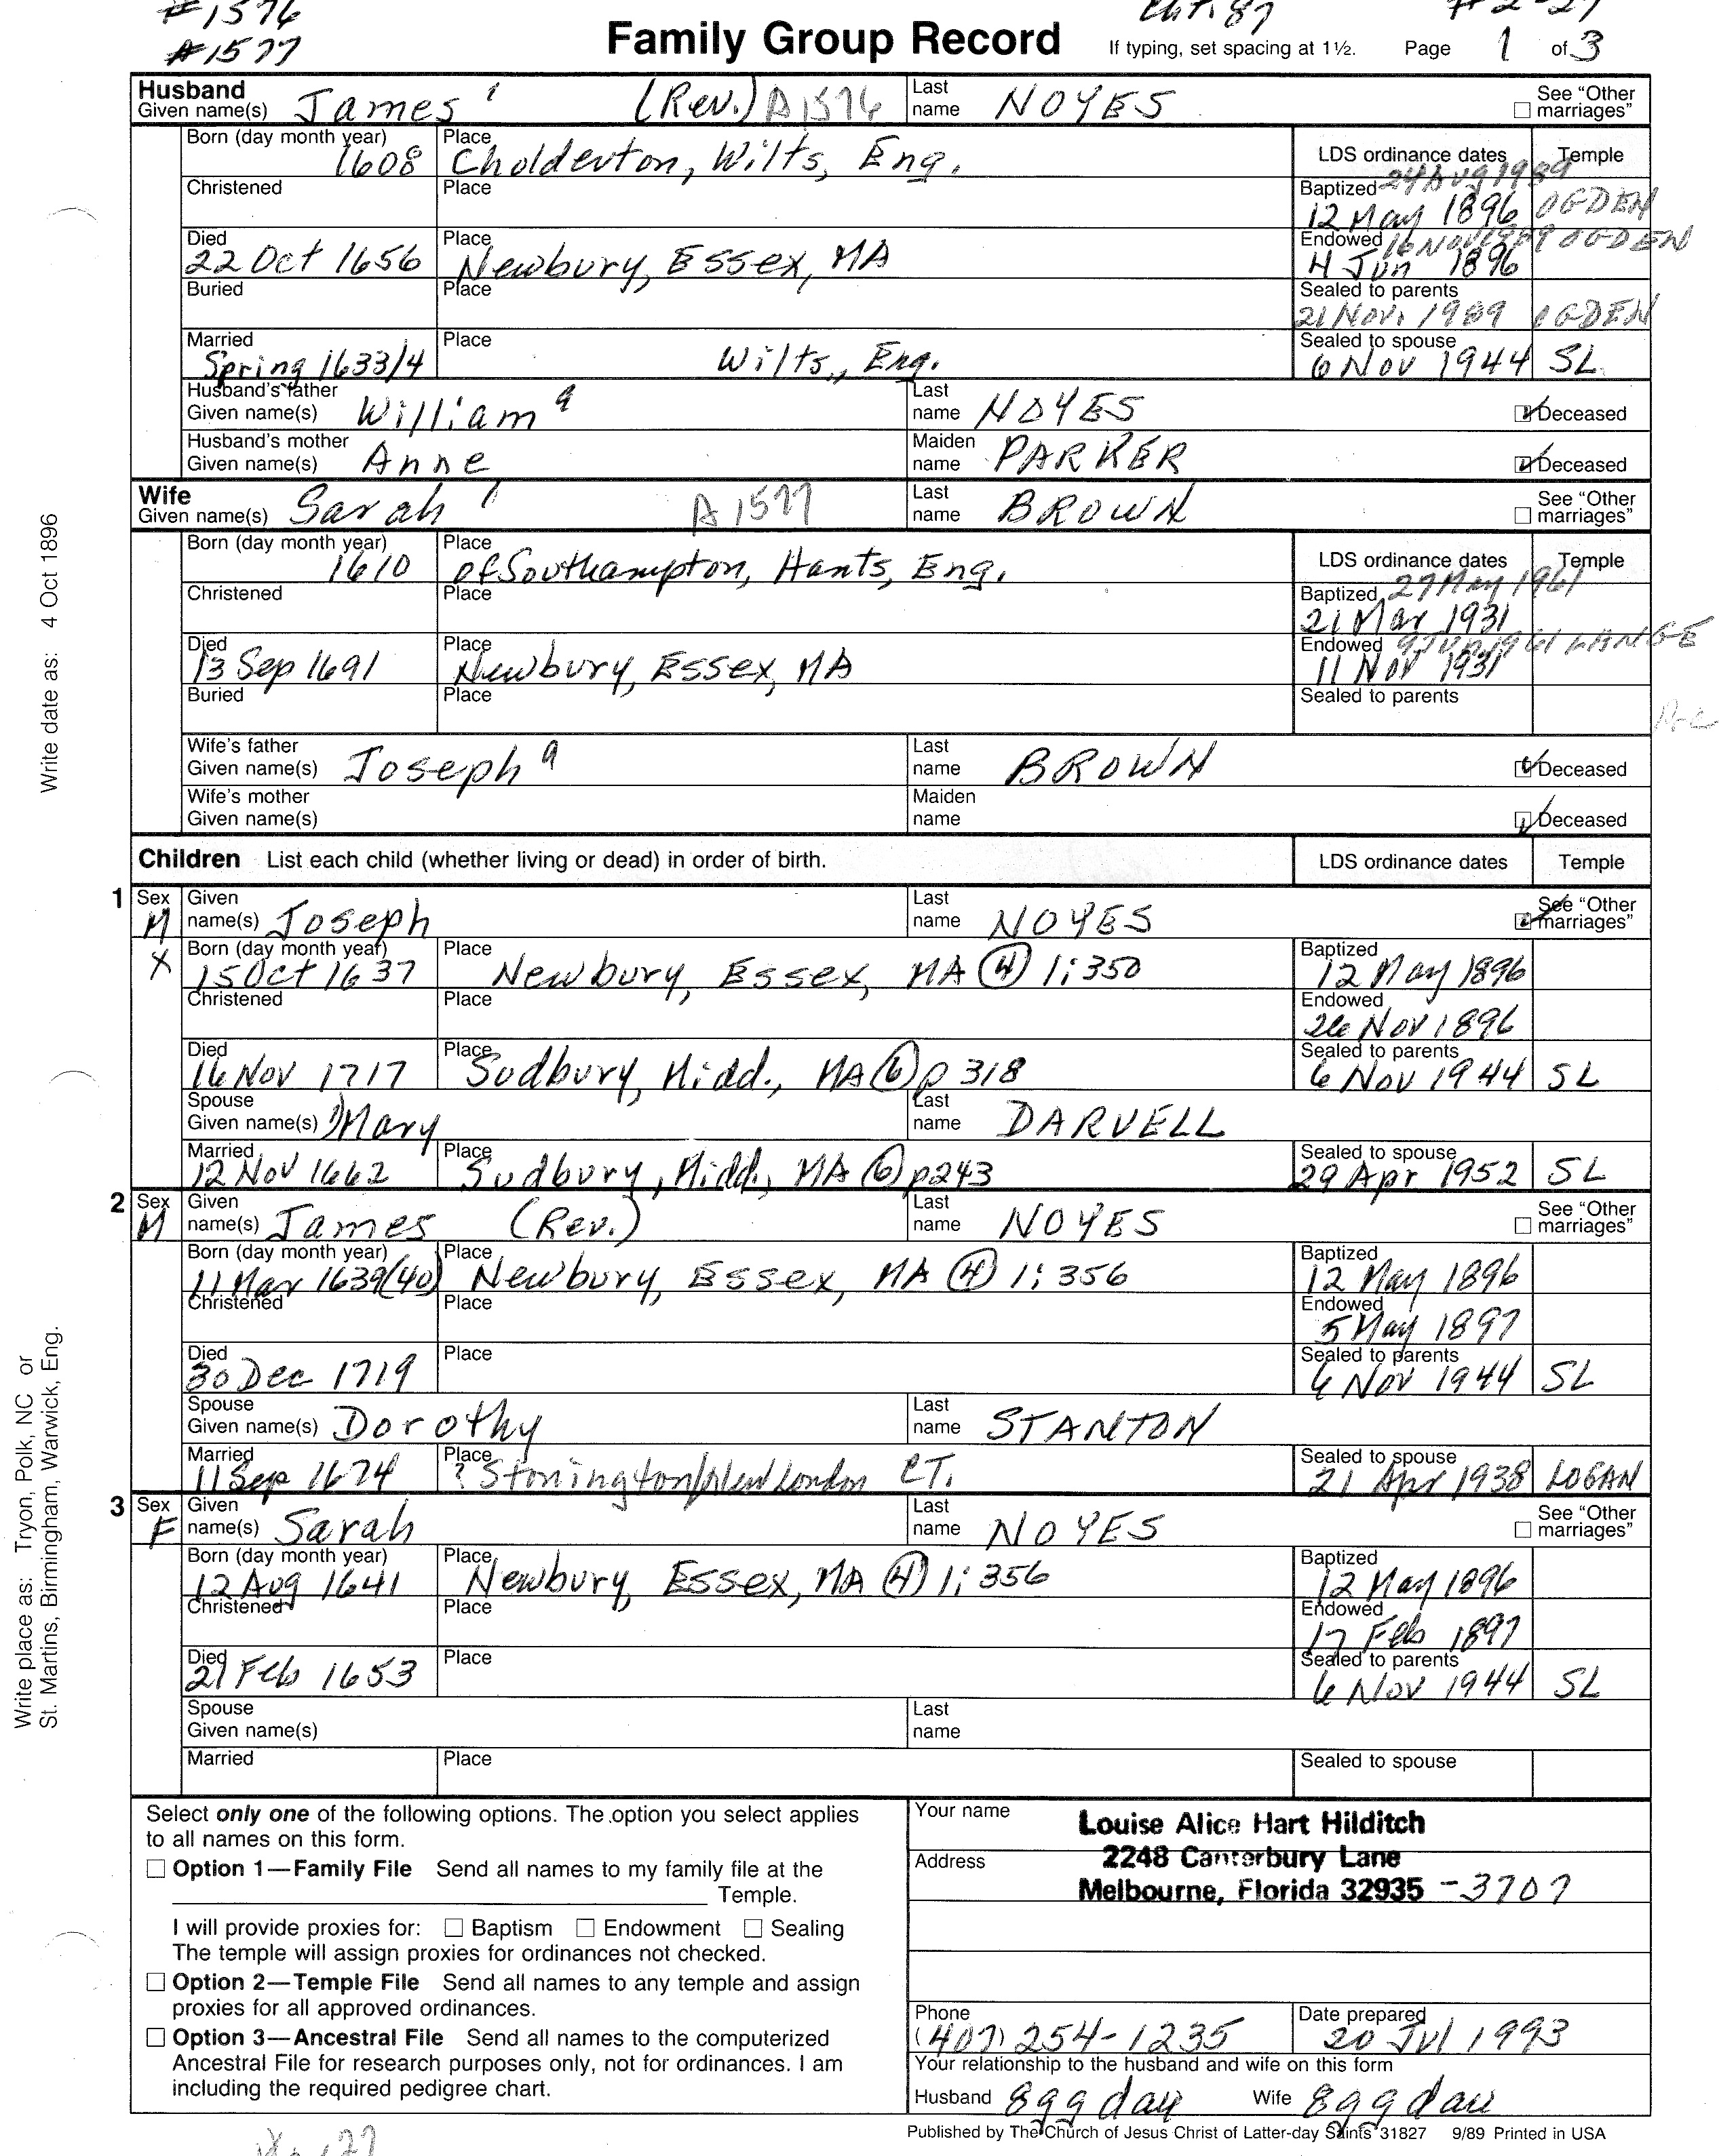 #1576
#1577
Family Group Record
If typing, set spacing at 1½. Page 1 of 3
Husband
Given name(s) James (Rev.) A1576 Last name NOYES See "Other marriages"
Born (day month year) 1608 Place Cholderton, Wilts, Eng. LDS ordinance dates Temple
Christened Place Baptized 24 Aug 1989 12 May 1896 OGDEN
Died 22 Oct 1656 Place Newbury, Essex, MA Endowed 16 Nov 1989 OGDEN 4 Jun 1896
Buried Place Sealed to parents 21 Nov. 1989 OGDEN
Married Spring 1633/4 Place Wilts., Eng. Sealed to spouse 6 Nov 1944 SL
Husband's father Given name(s) William Last name NOYES Deceased
Husband's mother Given name(s) Anne Maiden name PARKER Deceased
Wife
Given name(s) Sarah A1577 Last name BROWN See "Other marriages"
Born (day month year) 1610 Place of Southampton, Hants, Eng. LDS ordinance dates Temple
Christened Place Baptized 27 May 1961 21 Mar 1931
Died 13 Sep 1691 Place Newbury, Essex, MA Endowed 9 Jun 1961 11 Nov 1931
Buried Place Sealed to parents
Wife's father Given name(s) Joseph Last name BROWN Deceased
Wife's mother Given name(s) Maiden name Deceased
Children List each child (whether living or dead) in order of birth. LDS ordinance dates Temple
1 Sex M Given name(s) Joseph Last name NOYES See "Other marriages"
X Born (day month year) 15 Oct 1637 Place Newbury, Essex, MA (4) 1:350 Baptized 12 May 1896
Christened Place Endowed 26 Nov 1896
Died 16 Nov 1717 Place Sudbury, Midd., MA (6) p 318 Sealed to parents 6 Nov 1944 SL
Spouse Given name(s) Mary Last name DARVELL
Married 12 Nov 1662 Place Sudbury, Midd., MA (6) p243 Sealed to spouse 29 Apr 1952 SL
2 Sex M Given name(s) James (Rev.) Last name NOYES See "Other marriages"
Born (day month year) 11 Mar 1639(40) Place Newbury, Essex, MA (4) 1:356 Baptized 12 May 1896
Christened Place Endowed 5 May 1897
Died 30 Dec 1719 Place Sealed to parents 6 Nov 1944 SL
Spouse Given name(s) Dorothy Last name STANTON
Married 11 Sep 1674 Place ? Stonington/New London CT. Sealed to spouse 21 Apr 1938 LOGAN
3 Sex F Given name(s) Sarah Last name NOYES See "Other marriages"
Born (day month year) 12 Aug 1641 Place Newbury, Essex, MA (4) 1:356 Baptized 12 May 1896
Christened Place Endowed 17 Feb 1897
Died 21 Feb 1653 Place Sealed to parents 6 Nov 1944 SL
Spouse Given name(s) Last name
Married Place Sealed to spouse
Select only one of the following options. The option you select applies
to all names on this form.
Option 1—Family File Send all names to my family file at the
Temple.
I will provide proxies for: Baptism Endowment Sealing
The temple will assign proxies for ordinances not checked.
Option 2—Temple File Send all names to any temple and assign
proxies for all approved ordinances.
Option 3—Ancestral File Send all names to the computerized
Ancestral File for research purposes only, not for ordinances. I am
including the required pedigree chart.
Your name Louise Alice Hart Hilditch
Address 2248 Canterbury Lane
Melbourne, Florida 32935 -3707
Phone (407) 254-1235 Date prepared 20 Jul 1993
Your relationship to the husband and wife on this form
Husband 8 gg dau Wife 8 gg dau
Published by The Church of Jesus Christ of Latter-day Saints 31827 9/89 Printed in USA
Write date as: 4 Oct 1896
Write place as: Tryon, Polk, NC or
St. Martins, Birmingham, Warwick, Eng.